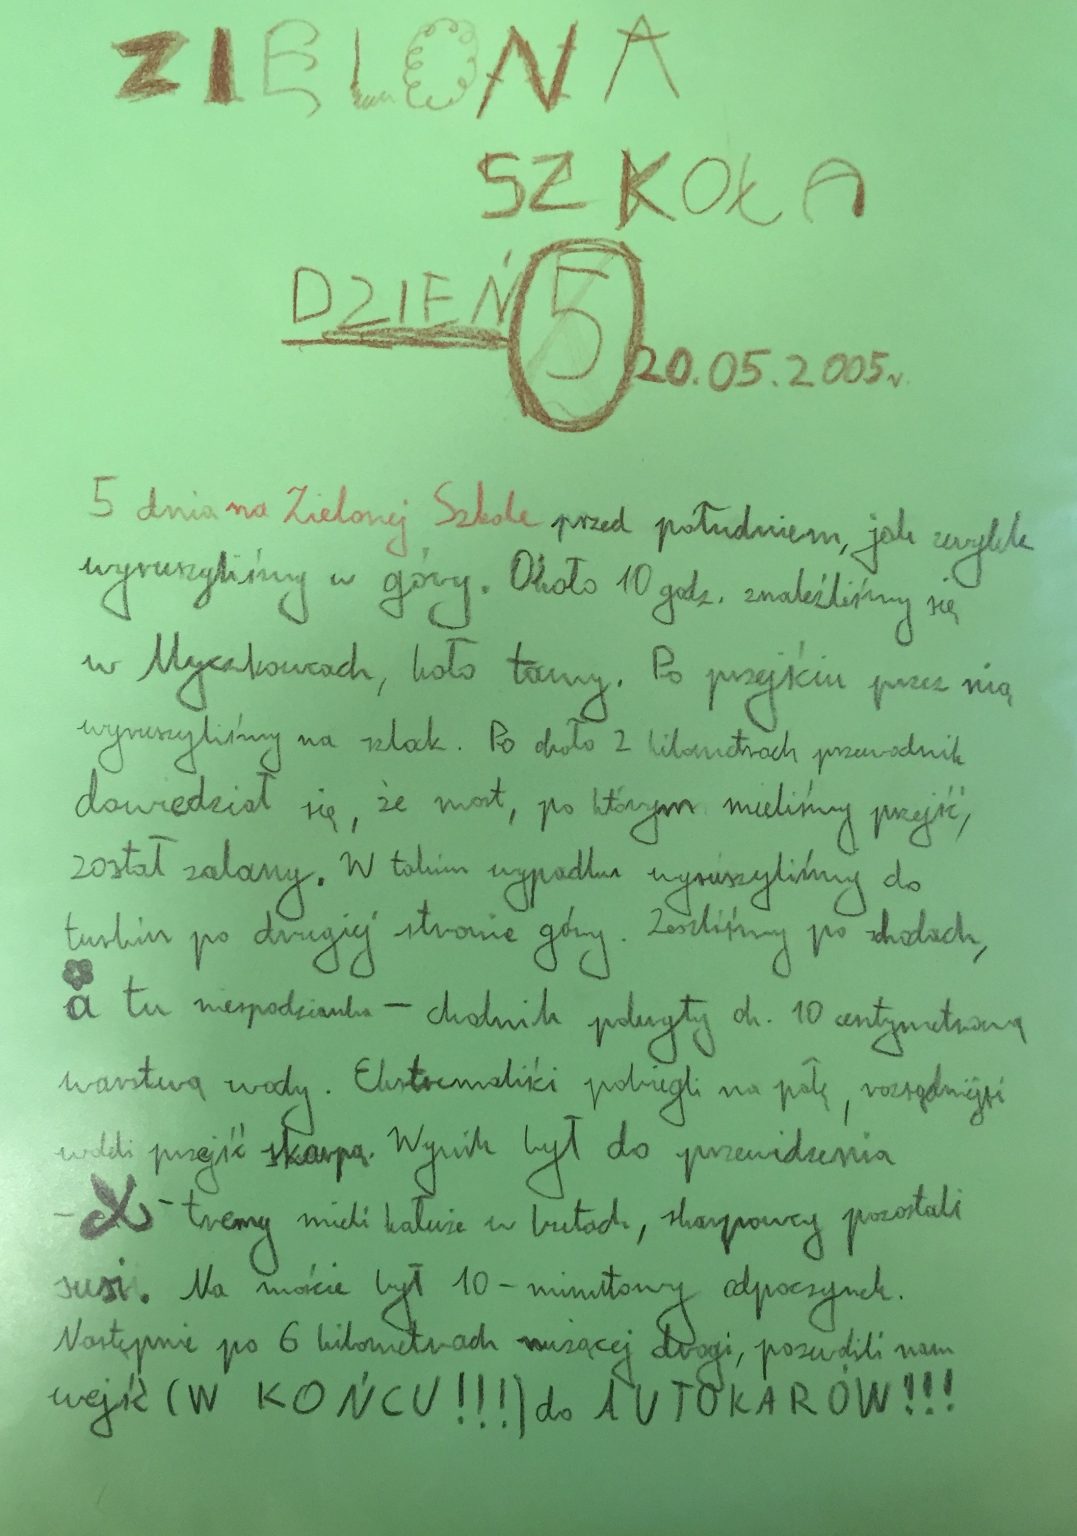 ZIELONA
SZKOŁA
DZIEŃ 5
20.05.2005r.
5 dnia na Zielonej Szkole przed południem, jak zwykle
wyruszyliśmy w góry. Około 10 godz. znaleźliśmy się
w Myczkowcach, koło tamy. Po przejściu przez nią
wyruszyliśmy na szlak. Po około 2 kilometrach przewodnik
dowiedział się, że most, po którym mieliśmy przejść,
został zalany. W takim wypadku wyruszyliśmy do
turbin po drugiej stronie góry. Zeszliśmy po schodach,
a tu niespodzianka – chodnik pokryty ok. 10 centymetrową
warstwą wody. Ekstremaliści pobiegli na pałę, rozsądniejsi
woleli przejść skarpą. Wynik był do przewidzenia
- X-tremy mieli kałuże w butach, skarpowcy pozostali
susi. Na moście był 10-minutowy odpoczynek.
Następnie po 6 kilometrach nużącej drogi, pozwolili nam
wejść (W KOŃCU!!!) do AUTOKARÓW!!!